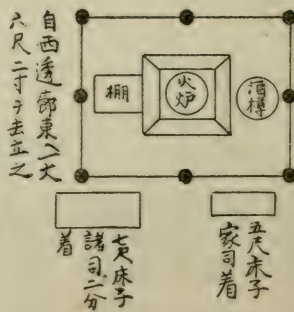 酒樽
火炉
棚
自西透廊東へ一丈
六尺二寸ヲ去立之
五尺床子
家司着
七尺床子
諸司二分
着